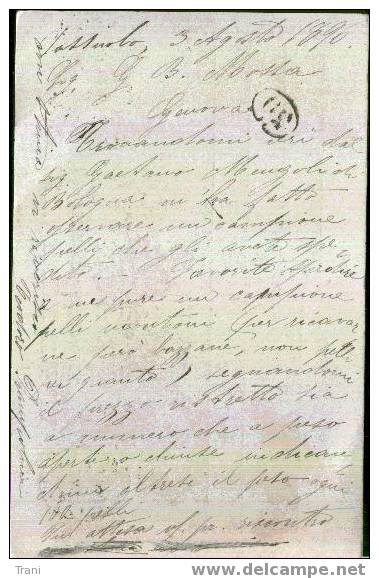 Sassuolo, 3 Agosto 1890.
Sig. G. B. Mosta
Genova
Trovandomi ieri dal
Sig Gaetano Mengoli di
Bologna m'ha fatto
osservare un campione
pelli che gli avete spe-
dito. — Favorite spedire
a me pure un campione
pelli montoni per ricavar
ne però bazzane, non pelli
da guanto, segnandomi
il prezzo ristretto sia
a numero che a peso
aperte o chiuse indican
domi altresì il peso ogni
100 pelli
In attesa di pr. riscontro
con stima mi
Trani
delcampe.net